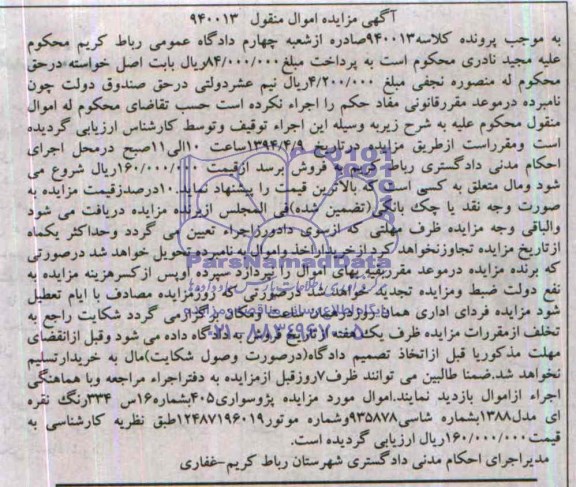 آگهی مزایده اموال منقول ۹۴۰۰۱۳
به موجب پرونده کلاسه۹۴۰۰۱۳صادره ازشعبه چهارم دادگاه عمومی رباط کریم محکوم
علیه مجید نادری محکوم است به پرداخت مبلغ۸۴/۰۰۰/۰۰۰ریال بابت اصل خواسته درحق
محکوم له منصوره نجفی مبلغ ۴/۲۰۰/۰۰۰ریال نیم عشردولتی درحق صندوق دولت چون
نامبرده درموعد مقررقانونی مفاد حکم را اجراء نکرده است حسب تقاضای محکوم له اموال
منقول محکوم علیه به شرح زیربه وسیله این اجراء توقیف وتوسط کارشناس ارزیابی گردیده
است ومقرراست ازطریق مزایده درتاریخ ۱۳۹۴/۴/۹ساعت ۱۰الی۱۱صبح درمحل اجرای
احکام مدنی دادگستری رباط کریم به فروش برسد ازقیمت ۱۶۰/۰۰۰/۰۰۰ریال شروع می
شود ومال متعلق به کسی است که بالاترین قیمت را پیشنهاد نماید.۱۰درصدزقیمت مزایده به
صورت وجه نقد یا چک بانکی(تضمین شده)فی المجلس ازبرنده مزایده دریافت می شود
والباقی وجه مزایده ظرف مهلتی که ازسوی دادورزاجراء تعیین می گردد وحداکثر یکماه
ازتاریخ مزایده تجاوزنخواهد کرد ازخریدار اخذ واموال به نامبرده تحویل خواهد شد درصورتی
که برنده مزایده درموعد مقرربقیه بهای اموال را نپردازد سپرده اوپس ازکسرهزینه مزایده به
نفع دولت ضبط ومزایده تجدید خواهد شد درصورتی که روزمزایده مصادف با ایام تعطیل
شود مزایده فردای اداری همان روزدرهمان ساعت ومکان برگزارمی گردد شکایت راجع به
تخلف ازمقررات مزایده ظرف یک هفته ازتاریخ فروش به دادگاه داده می شود وقبل ازانقضای
مهلت مذکوریا قبل ازاتخاذ تصمیم دادگاه(درصورت وصول شکایت)مال به خریدارتسلیم
نخواهد شد.ضمنا طالبین می توانند ظرف۷روزقبل ازمزایده به دفتراجراء مراجعه وبا هماهنگی
اجراء ازاموال بازدید نمایند.اموال مورد مزایده پژوسواری۴۰۵بشماره۱۶س ۳۳۴رنگ نقره
ای مدل۱۳۸۸بشماره شاسی۹۳۵۸۷۸وشماره موتور۱۲۴۸۷۱۹۶۰۱۹طبق نظریه کارشناسی به
قیمت۱۶۰/۰۰۰/۰۰۰ریال ارزیابی گردیده است.
مدیراجرای احکام مدنی دادگستری شهرستان رباط کریم-غفاری
ParsNamadData
۰۲۱-۸۸۳۴۹۶۷۰-۵